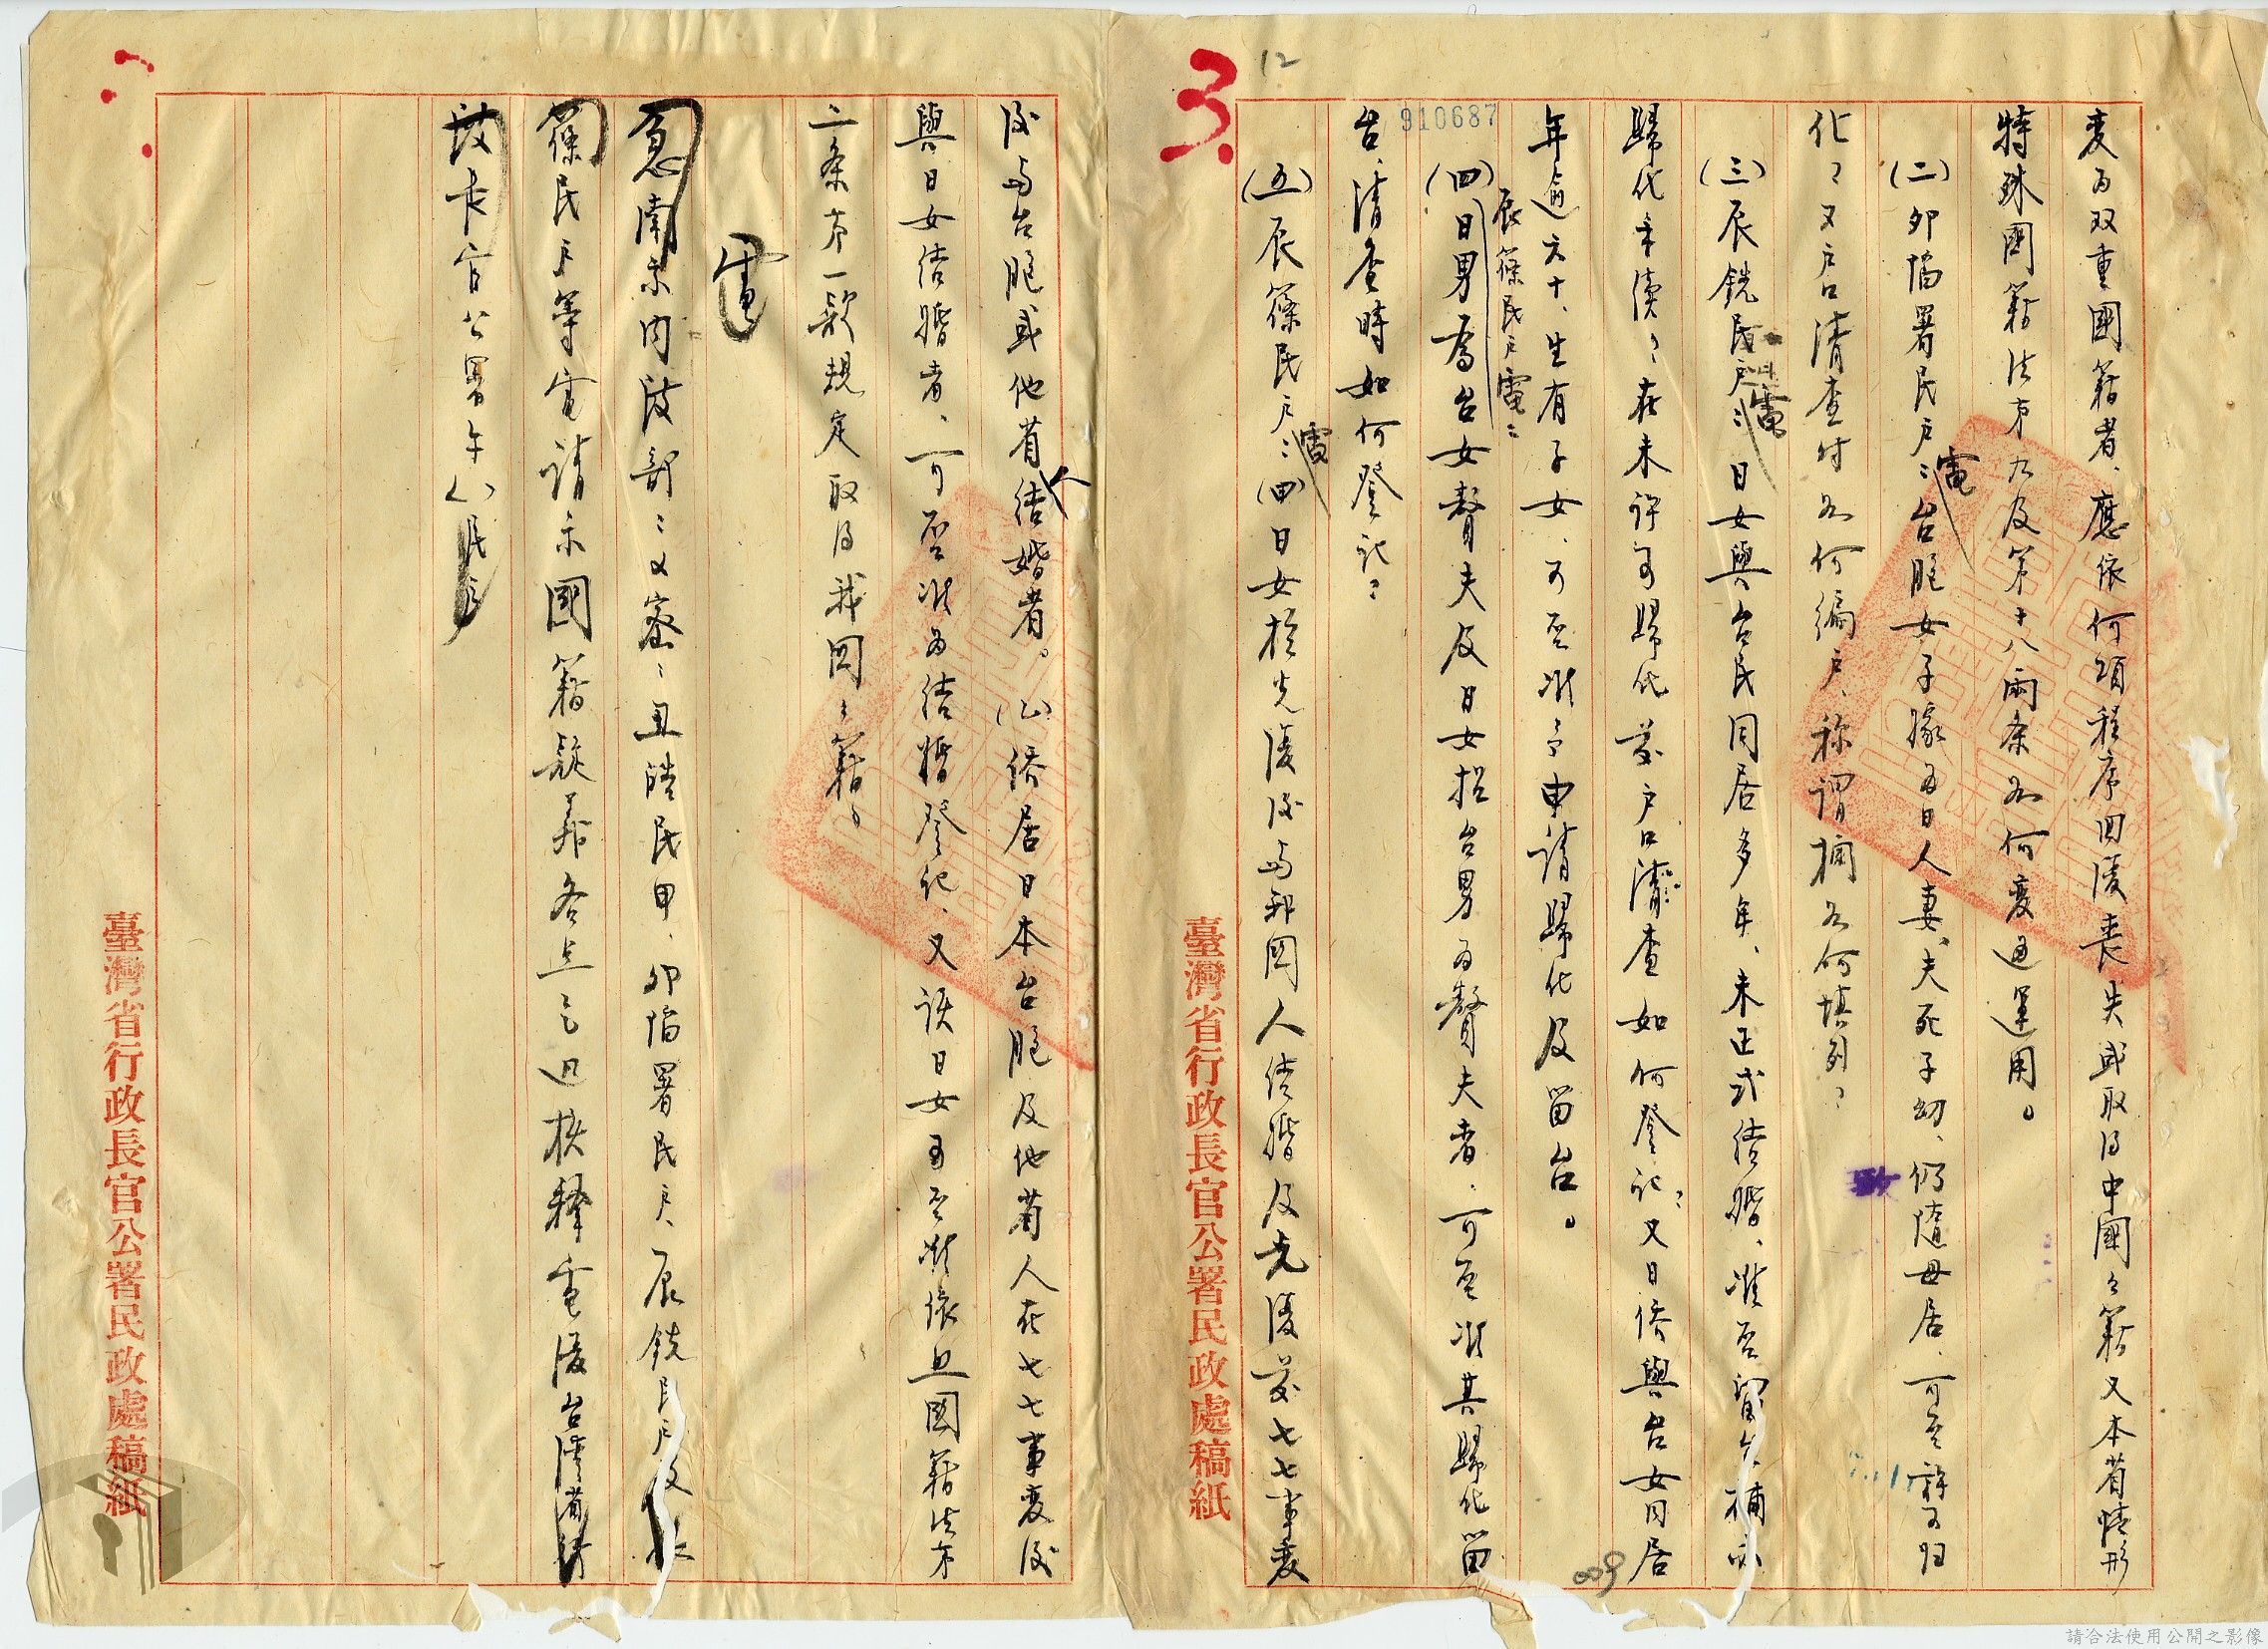 12
910687
変為双重國籍者、應依何項程序回復喪失或取得中國之籍又本省情形
特殊國籍法第九及第十八兩条如何変通運用。
(二)卯 署民戶電:台胞女子嫁為日人妻、夫死子幼、仍隨母居、可否許可归
化?又戶口清查时如何編戶、称謂欄如何填列?
(三)辰銑民戶電:日女與台民同居多年、未正式結婚、准否留台補
歸化手續?在未許可歸化前戶口清查如何登記?又日僑與台女同居
年逾六十、生有子女、可否准予申請歸化及留台。
辰篠民戶電:
(四)日男為台女贅夫及日女招台男為贅夫者、可否准其歸化留
台、清查時如何登記?
(五)辰篠民戶電:(四)日女於光復後與我国人结婚及光復前七七事变
後與台胞或他省人結婚者。(乙)僑居日本台胞及他省人在七七事変後
與日女结婚者、可否准為结婚登記、又該日女可否准依照國籍法第
二条第一款規定取得我国之籍。
電
急南京内政部:又密:丑皓民甲、卯 署民戶、辰銑民戶及
篠民戶等電請示國籍疑義各点乞迅核釋電復台灣省行
政長官公署午 民
臺灣省行政長官公署民政處稿紙
臺灣省行政長官公署民政處稿紙
009
請合法使用公開之影像